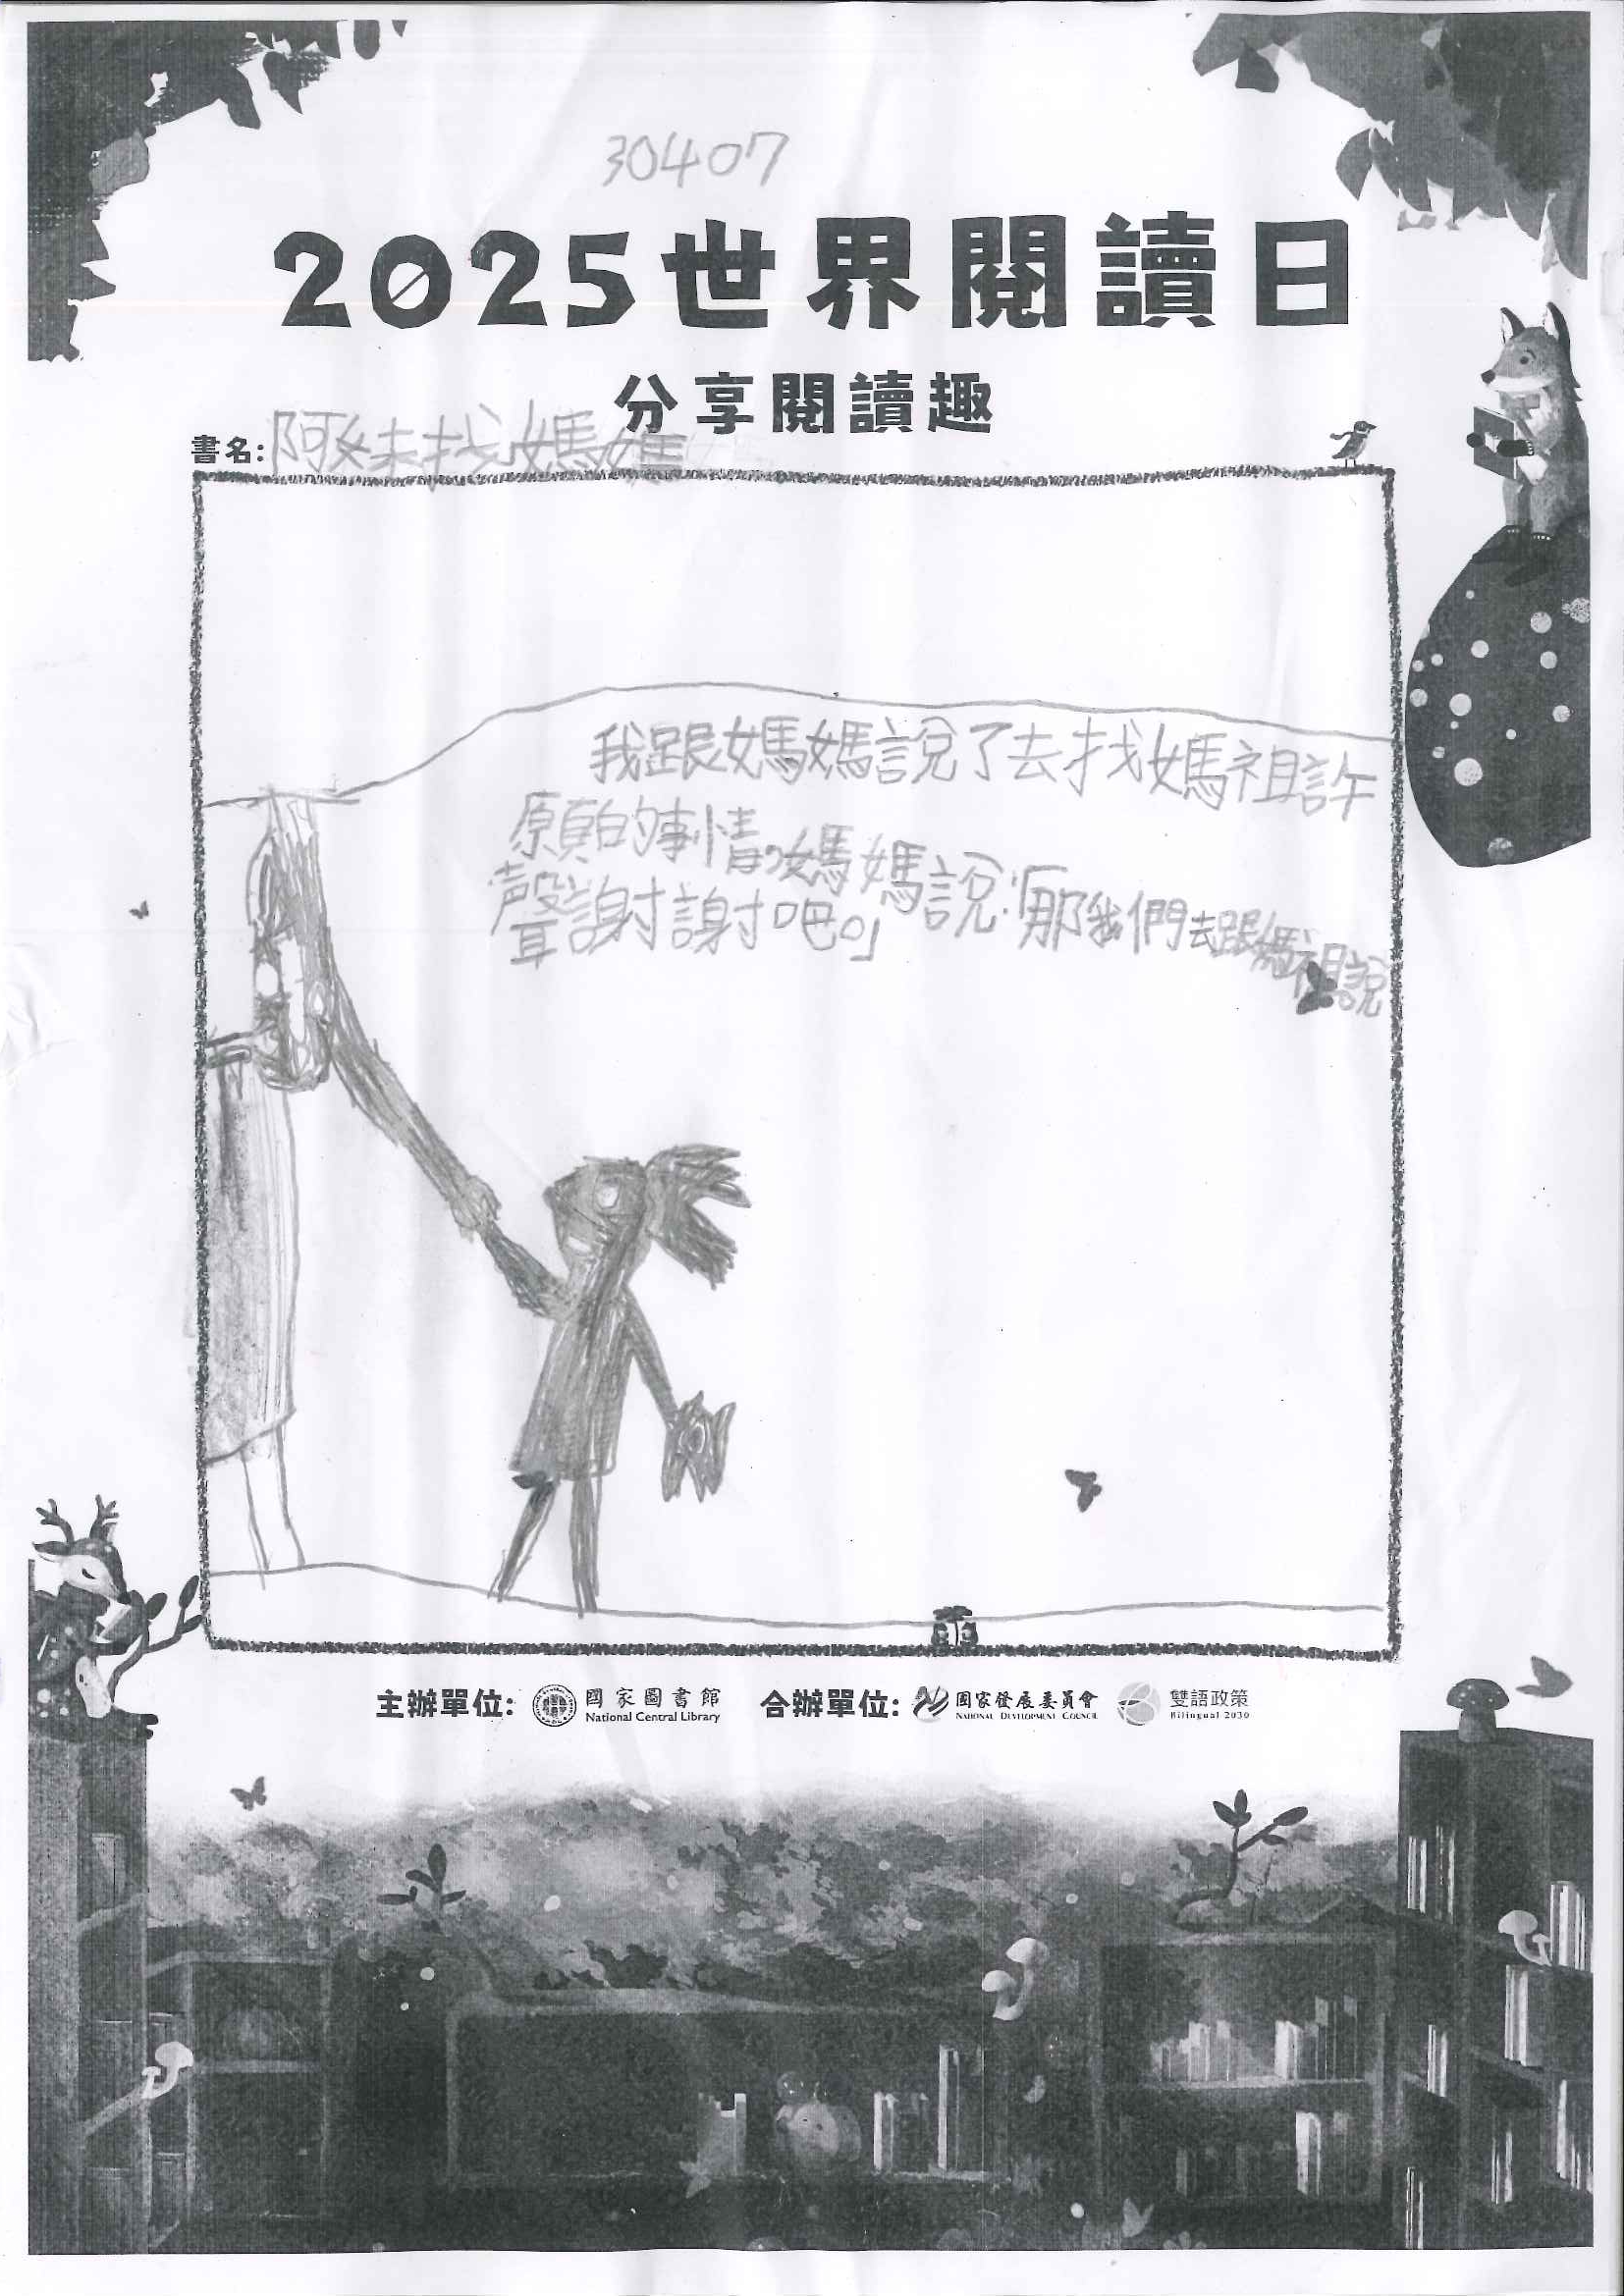 30407
2025世界閱讀日
分享閱讀趣
書名: 阿妹找媽媽
我跟媽媽說了去找媽祖許
願的事情,媽媽說:「那我們去跟媽祖說
聲謝謝吧。」
主辦單位: 國家圖書館 National Central Library 合辦單位: 國家發展委員會 NATIONAL DEVELOPMENT COUNCIL 雙語政策 Bilingual 2030